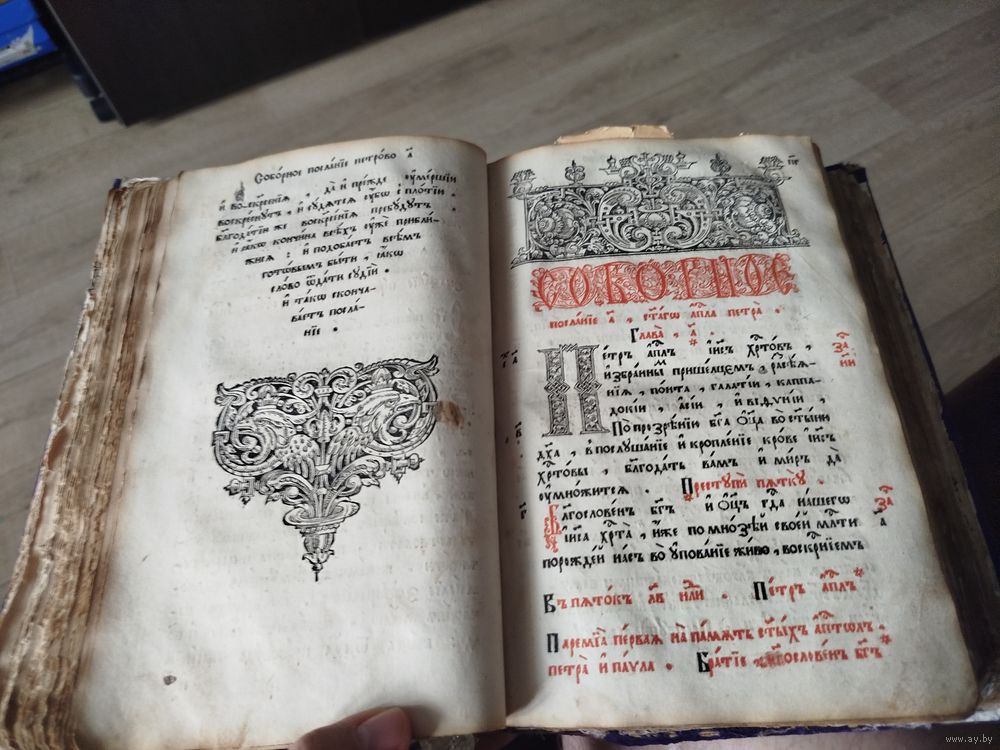 Соборное посланїе петрово а҃
и воскресенїя , да и прежде оумершїи
воскреснутъ , и судятся оубо с плотїи
благодѣтїи же воскресенїя пребудутъ
и яко кончина всѣхъ оуже прибли-
жися : и подобаетъ всѣмъ
готовымъ быти , яко
слово ѿдати судїи .
и тако сконча-
ваетъ посла-
нїе .
СОБОРНОЕ
посланїе а҃ , ст҃агѡ ап҃ла петра .
Глава , а҃ .
Петръ ап҃лъ іи҃съ хр҃товъ ,
избраннымъ пришелцемъ , разсѣѧ-
нїѧ , понта , галатїи , каппа-
докїи , асїи , и виѳунїи ,
По прозрѣнїи бг҃а ѻц҃а во ст҃ыни
дх҃а , в послушанїе и кропленїе крове іи҃съ
хр҃товы , благодать вамъ и миръ да
оумножится . Преступи пѧтку .
Благословенъ бг҃ъ и ѻц҃ъ гд҃а нашегѡ
іи҃са хр҃та , иже по мнозѣй своей мл҃ти
порождей насъ во упованїе живо , воскр҃нїемъ
за
Въ пѧтокъ л҃в нд҃ли . Петръ ап҃лъ
Паремїа первая на памѧть ст҃ыхъ ап҃толъ ,
петра и паула . Братїе , благословенъ бг҃ъ
www.ay.by